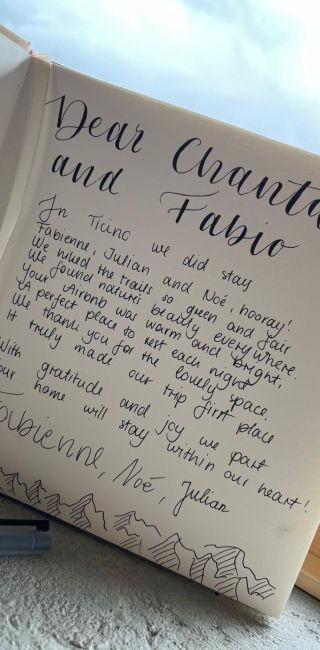 Dear Chanta
and Fabio
In Ticino we did stay
Fabienne, Julian and Noé, hooray!
We hiked the trails so green and fair
We found natures beauty everywhere.
Your Airbnb was warm and bright,
A perfect place to rest each night
We thank you for the lovely space.
It truly made our trip first place
With gratitude and joy we part
our home will stay within our heart!
Fabienne, Noé, Julian